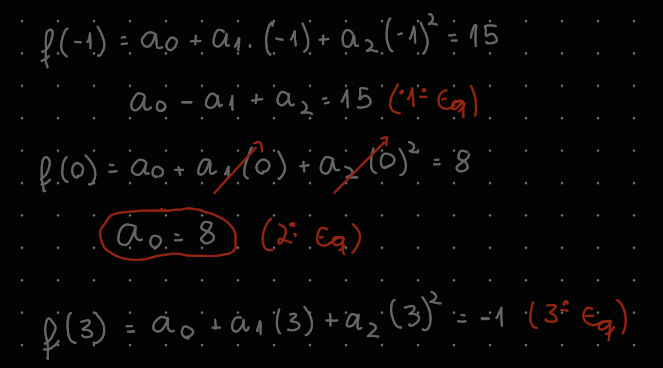 f(-1) = a₀ + a₁.(-1) + a₂(-1)² = 15
a₀ - a₁ + a₂ = 15 (1ª Eq)
f(0) = a₀ + a₁(0) + a₂(0)² = 8
a₀ = 8 (2ª Eq)
f(3) = a₀ + a₁(3) + a₂(3)² = -1 (3ª Eq)